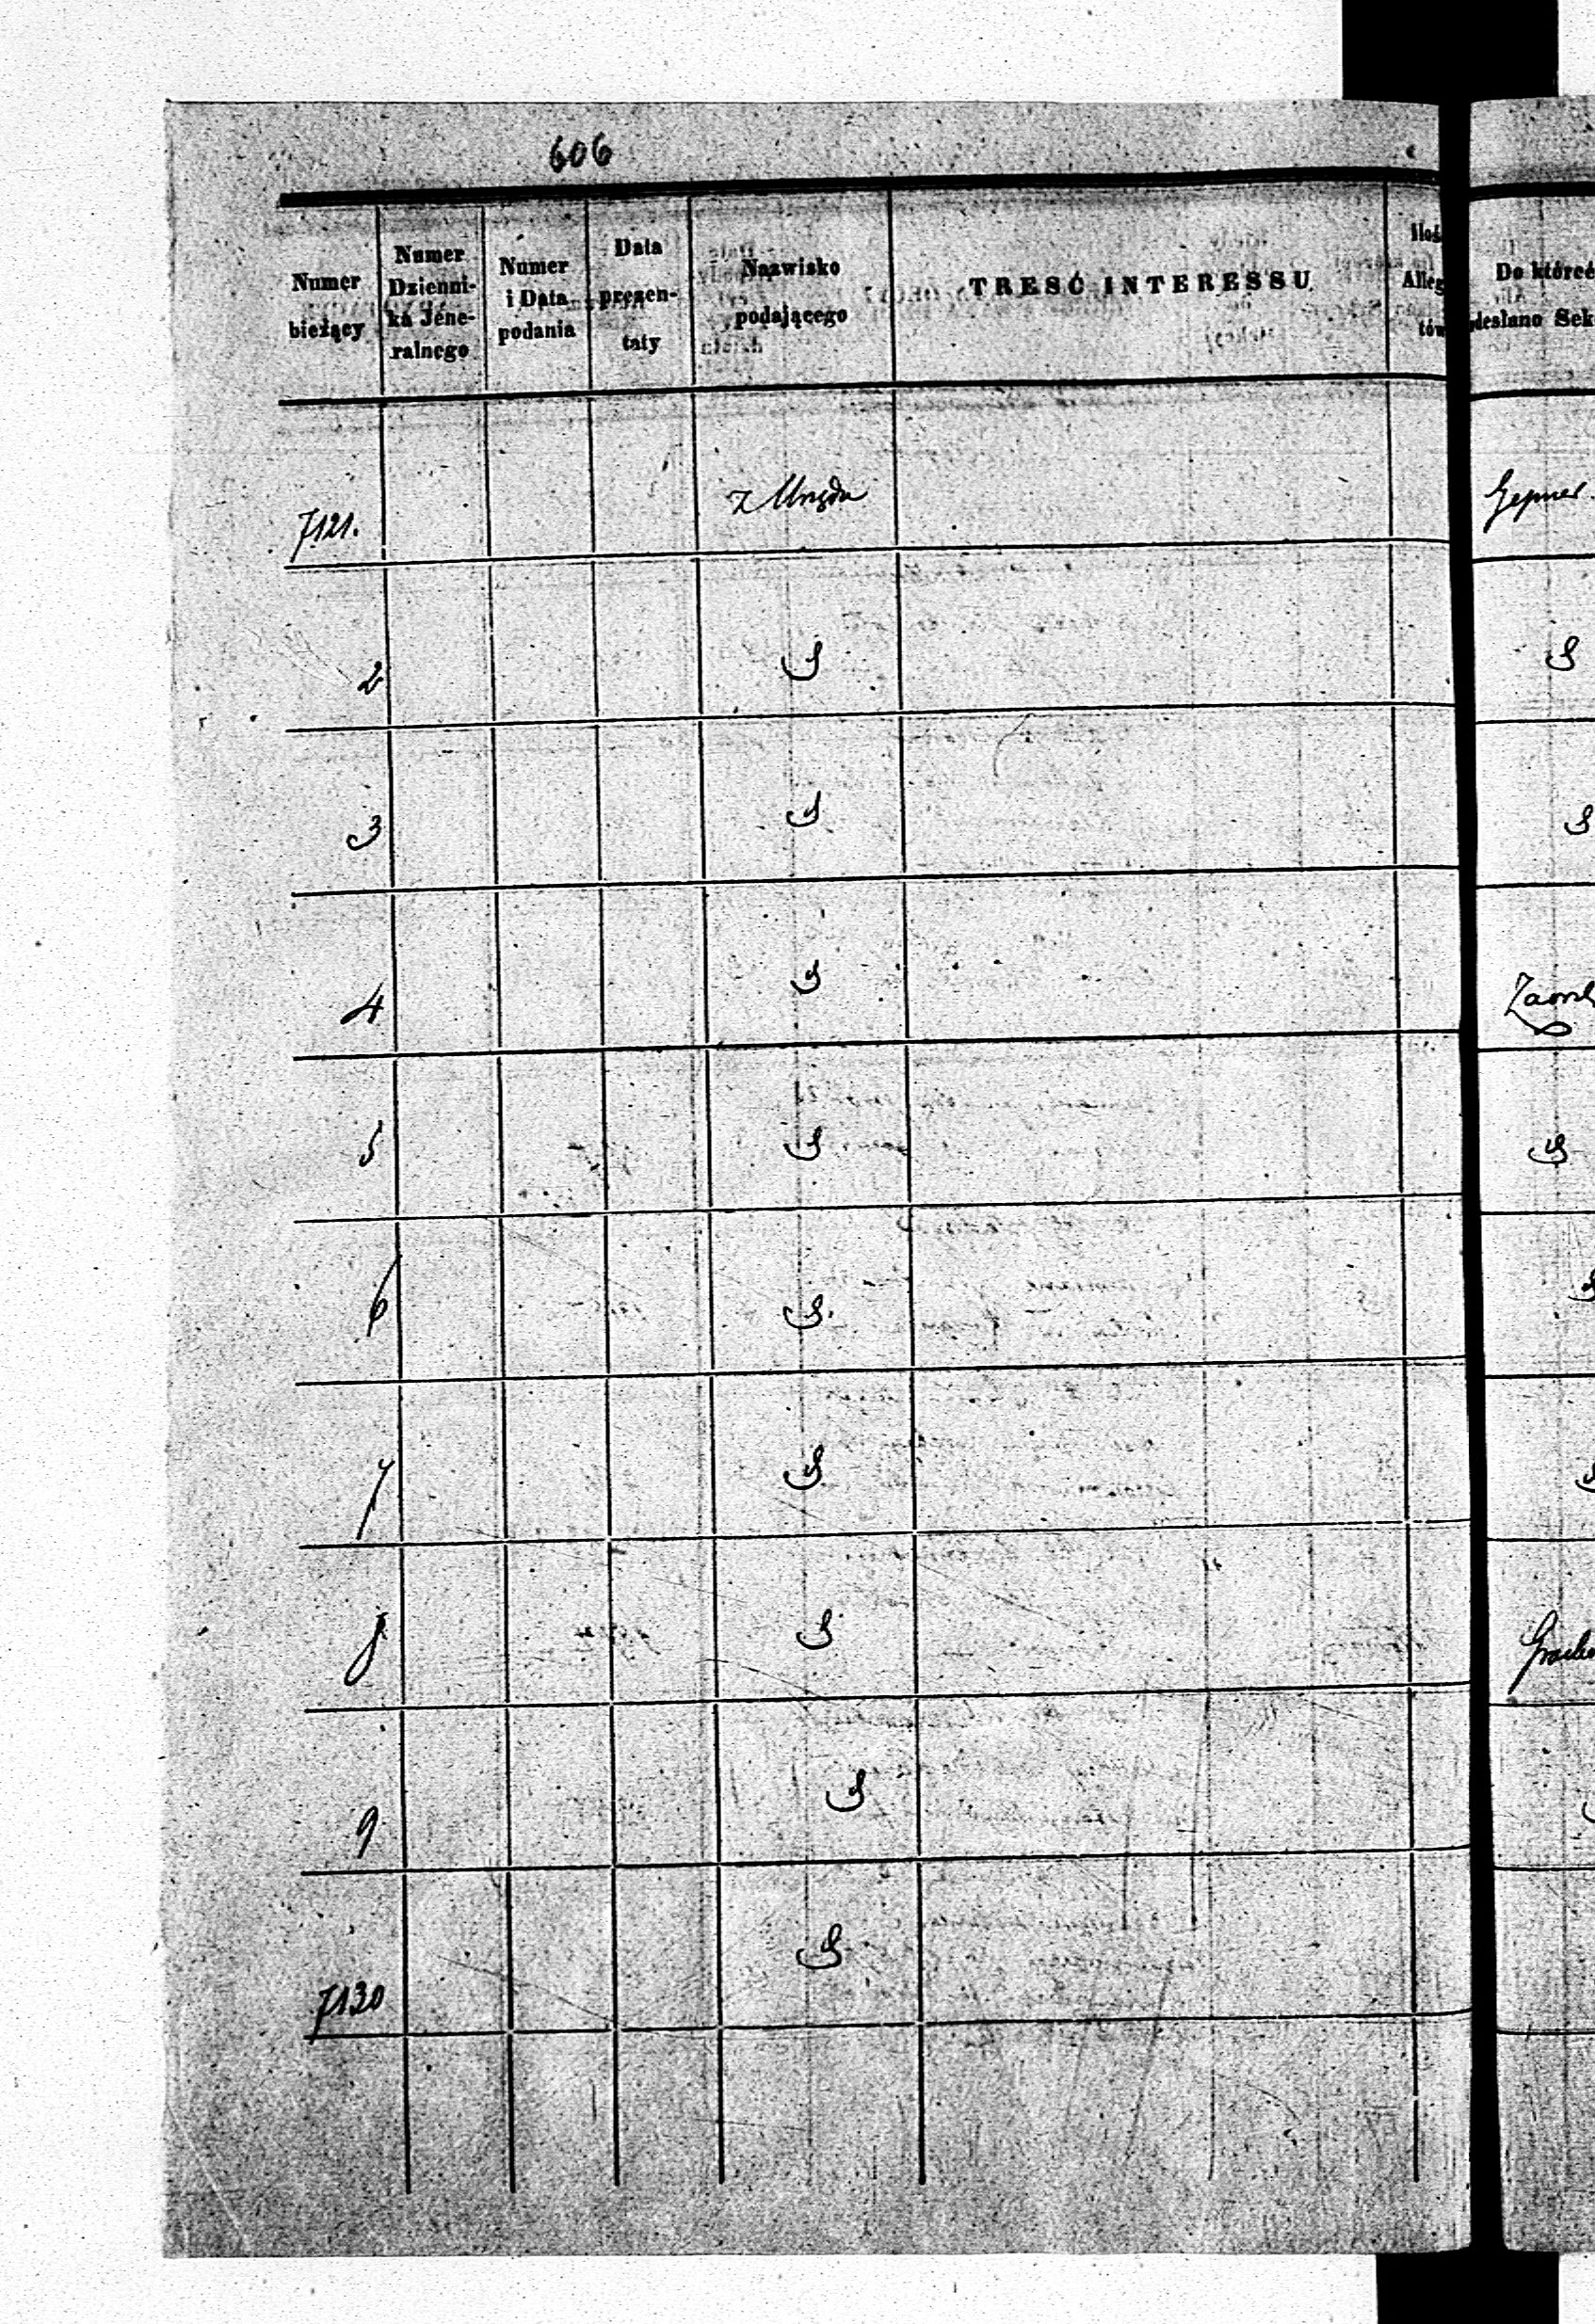 606
Numer bieżący
Numer Dzienni-ka Jene-ralnego
Numer i Data podania
Data prezen-taty
Nazwisko podającego
TRESĆ INTERESSU
Iloś Alleg tów
Do któreé desłano Sek
7121. z Urzędu
2 S S
3 S S
4 S
5 S S
6 S. S
7 S S
8 S
9 S
7130 S